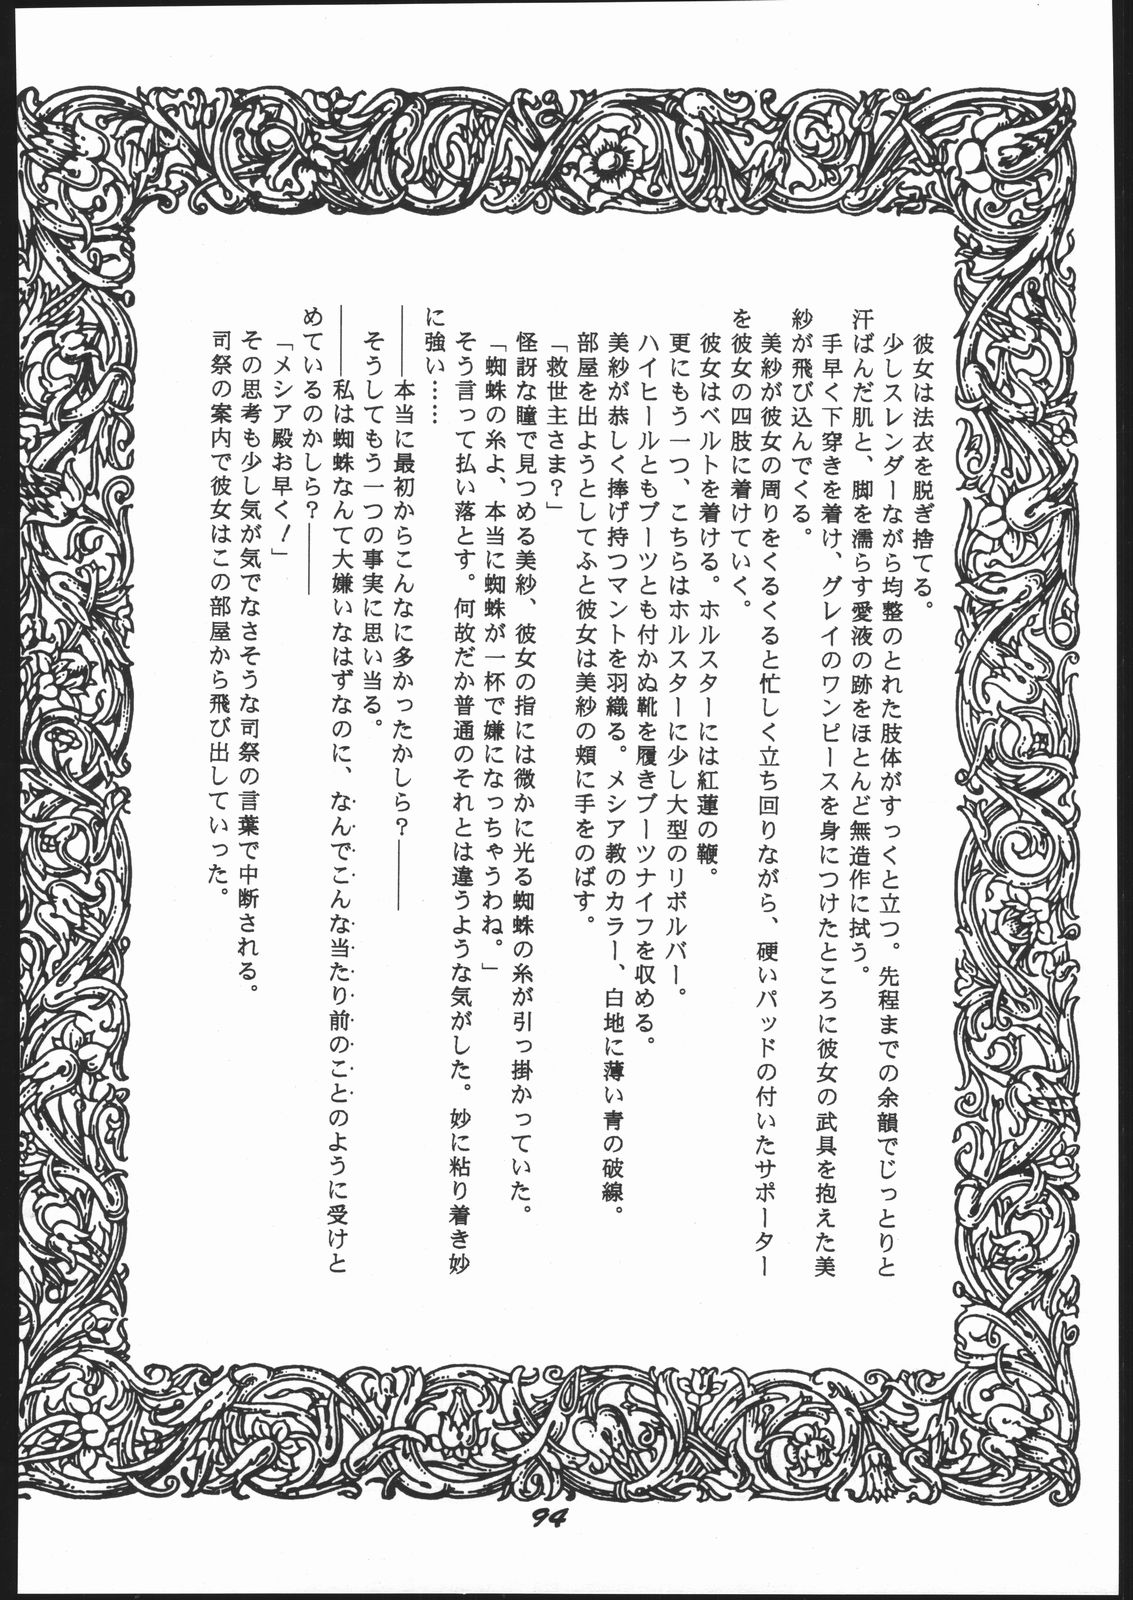 彼女は法衣を脱ぎ捨てる。
少しスレンダーながら均整のとれた肢体がすっくと立つ。先程までの余韻でじっとりと
汗ばんだ肌と、脚を濡らす愛液の跡をほとんど無造作に拭う。
手早く下穿きを着け、グレイのワンピースを身につけたところに彼女の武具を抱えた美
紗が飛び込んでくる。
美紗が彼女の周りをくるくると忙しく立ち回りながら、硬いパッドの付いたサポーター
を彼女の四肢に着けていく。
彼女はベルトを着ける。ホルスターには紅蓮の鞭。
更にもう一つ、こちらはホルスターに少し大型のリボルバー。
ハイヒールともブーツとも付かぬ靴を履きブーツナイフを収める。
美紗が恭しく捧げ持つマントを羽織る。メシア教のカラー、白地に薄い青の破線。
部屋を出ようとしてふと彼女は美紗の頬に手をのばす。
「救世主さま?」
怪訝な瞳で見つめる美紗、彼女の指には微かに光る蜘蛛の糸が引っ掛かっていた。
「蜘蛛の糸よ、本当に蜘蛛が一杯で嫌になっちゃうわね。」
そう言って払い落とす。何故だか普通のそれとは違うような気がした。妙に粘り着き妙
に強い……
――本当に最初からこんなに多かったかしら?――
そうしてもう一つの事実に思い当る。
――私は蜘蛛なんて大嫌いなはずなのに、なんでこんな当たり前のことのように受けと
めているのかしら?――
「メシア殿お早く!」
その思考も少し気が気でなさそうな司祭の言葉で中断される。
司祭の案内で彼女はこの部屋から飛び出していった。
94